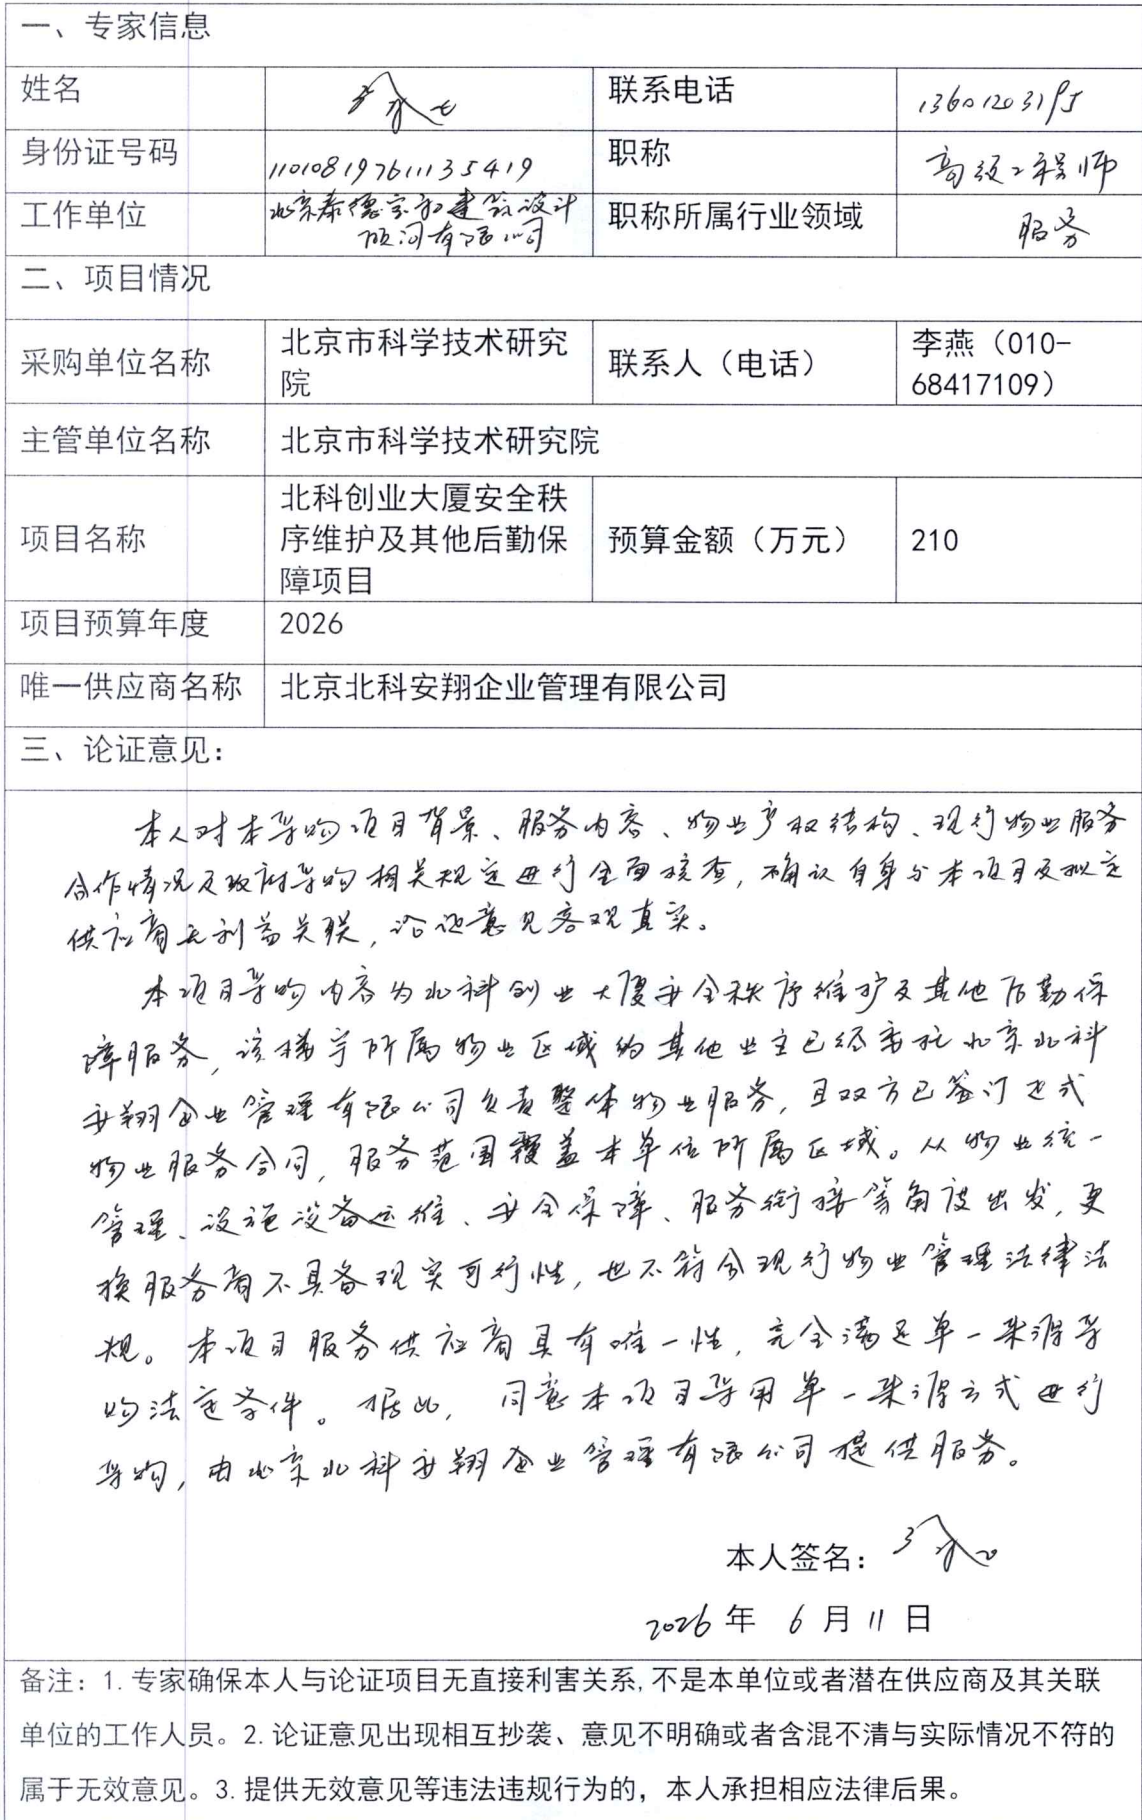 一、专家信息
姓名
联系电话
身份证号码 110108197611135419 职称 高级工程师
工作单位 北京泰德宏和建筑设计顾问有限公司 职称所属行业领域 服务
二、项目情况
采购单位名称 北京市科学技术研究院 联系人（电话） 李燕（010-68417109）
主管单位名称 北京市科学技术研究院
项目名称 北科创业大厦安全秩序维护及其他后勤保障项目 预算金额（万元） 210
项目预算年度 2026
唯一供应商名称 北京北科安翔企业管理有限公司
三、论证意见：
本人对本采购项目背景、服务内容、物业产权结构、现行物业服务
合作情况及政府采购相关规定进行全面核查，确认自身与本项目及拟定
供应商无利益关联，论证意见客观真实。
本项目采购内容为北科创业大厦安全秩序维护及其他后勤保
障服务，该楼宇所属物业区域的其他业主已经委托北京北科
安翔企业管理有限公司负责整体物业服务，且双方已签订正式
物业服务合同，服务范围覆盖本单位所属区域。从物业统一
管理、设施设备运维、安全保障、服务衔接等角度出发，更
换服务商不具备现实可行性，也不符合现行物业管理法律法
规。本项目服务供应商具有唯一性，完全满足单一来源采
购法定条件。据此，同意本项目采用单一来源方式进行
采购，由北京北科安翔企业管理有限公司提供服务。
本人签名：
2026年 6月11日
备注：1.专家确保本人与论证项目无直接利害关系,不是本单位或者潜在供应商及其关联
单位的工作人员。2.论证意见出现相互抄袭、意见不明确或者含混不清与实际情况不符的
属于无效意见。3.提供无效意见等违法违规行为的，本人承担相应法律后果。